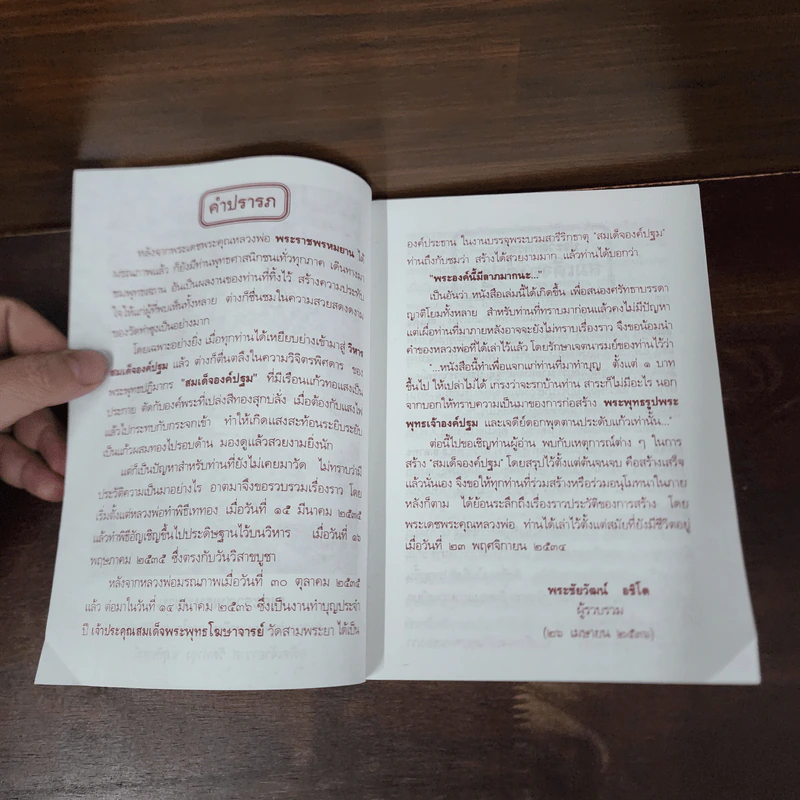 คำปรารภ
หลังจากพระเดชพระคุณหลวงพ่อ พระราชพรหมยาน ได้
มรณภาพแล้ว ก็ยังมีท่านพุทธศาสนิกชนทั่วทุกภาค เดินทางมา
ชมพุทธสถาน อันเป็นผลงานของท่านที่ทิ้งไว้ สร้างความประทับ
ใจให้แก่ผู้ที่พบเห็นทั้งหลาย ต่างก็ชื่นชมในความสวยสดงดงาม
ของวัดท่าซุงเป็นอย่างมาก
โดยเฉพาะอย่างยิ่ง เมื่อทุกท่านได้เหยียบย่างเข้ามาสู่ วิหาร
สมเด็จองค์ปฐม แล้ว ต่างก็ตื่นตะลึงในความวิจิตรพิศดาร ของ
พระพุทธปฏิมากร "สมเด็จองค์ปฐม" ที่มีเรือนแก้วทอแสงเป็น
ประกาย ตัดกับองค์พระที่เปล่งสีทองสุกปลั่ง เมื่อต้องกับแสงไฟ
แล้วไปกระทบกับกระจกเข้า ทำให้เกิดแสงสะท้อนระยิบระยับ
เป็นแก้วผสมทองไปรอบด้าน มองดูแล้วสวยงามยิ่งนัก
แต่ก็เป็นปัญหาสำหรับท่านที่ยังไม่เคยมาวัด ไม่ทราบว่ามี
ประวัติความเป็นมาอย่างไร อาตมาจึงขอรวบรวมเรื่องราว โดย
เริ่มตั้งแต่หลวงพ่อทำพิธีเททอง เมื่อวันที่ ๑๕ มีนาคม ๒๕๓๕
แล้วทำพิธีอัญเชิญขึ้นไปประดิษฐานไว้บนวิหาร เมื่อวันที่ ๑๖
พฤษภาคม ๒๕๓๕ ซึ่งตรงกับวันวิสาขบูชา
หลังจากหลวงพ่อมรณภาพเมื่อวันที่ ๓๐ ตุลาคม ๒๕๓๕
แล้ว ต่อมาในวันที่ ๑๔ มีนาคม ๒๕๓๖ ซึ่งเป็นงานทำบุญประจำ
ปี เจ้าประคุณสมเด็จพระพุทธโฆษาจารย์ วัดสามพระยา ได้เป็น
องค์ประธาน ในงานบรรจุพระบรมสารีริกธาตุ "สมเด็จองค์ปฐม"
ท่านถึงกับชมว่า สร้างได้สวยงามมาก แล้วท่านได้บอกว่า
"พระองค์นี้มีลาภมากนะ..."
เป็นอันว่า หนังสือเล่มนี้ได้เกิดขึ้น เพื่อสนองศรัทธาบรรดา
ญาติโยมทั้งหลาย สำหรับท่านที่ทราบมาก่อนแล้วคงไม่มีปัญหา
แต่เผื่อท่านที่มาภายหลังอาจจะยังไม่ทราบเรื่องราว จึงขอน้อมนำ
คำของหลวงพ่อที่ได้เล่าไว้แล้ว โดยรักษาเจตนารมย์ของท่านไว้ว่า
"...หนังสือนี้ทำเพื่อแจกแก่ท่านที่มาทำบุญ ตั้งแต่ ๑ บาท
ขึ้นไป ให้เปล่าไม่ได้ เกรงว่าจะรกบ้านท่าน สาระก็ไม่มีอะไร นอก
จากบอกให้ทราบความเป็นมาของการก่อสร้าง พระพุทธรูปพระ
พุทธเจ้าองค์ปฐม และเจดีย์ดอกพุดตานประดับแก้วเท่านั้น..."
ต่อนี้ไปขอเชิญท่านผู้อ่าน พบกับเหตุการณ์ต่าง ๆ ในการ
สร้าง "สมเด็จองค์ปฐม" โดยสรุปไว้ตั้งแต่ต้นจนจบ คือสร้างเสร็จ
แล้วนั่นเอง จึงขอให้ทุกท่านที่ร่วมสร้างหรือร่วมอนุโมทนาในภาย
หลังก็ตาม ได้ย้อนระลึกถึงเรื่องราวประวัติของการสร้าง โดย
พระเดชพระคุณหลวงพ่อ ท่านได้เล่าไว้ตั้งแต่สมัยที่ยังมีชีวิตอยู่
เมื่อวันที่ ๒๓ พฤศจิกายน ๒๕๓๔
พระชัยวัฒน์ อชิโต
ผู้รวบรวม
(๒๖ เมษายน ๒๕๓๖)